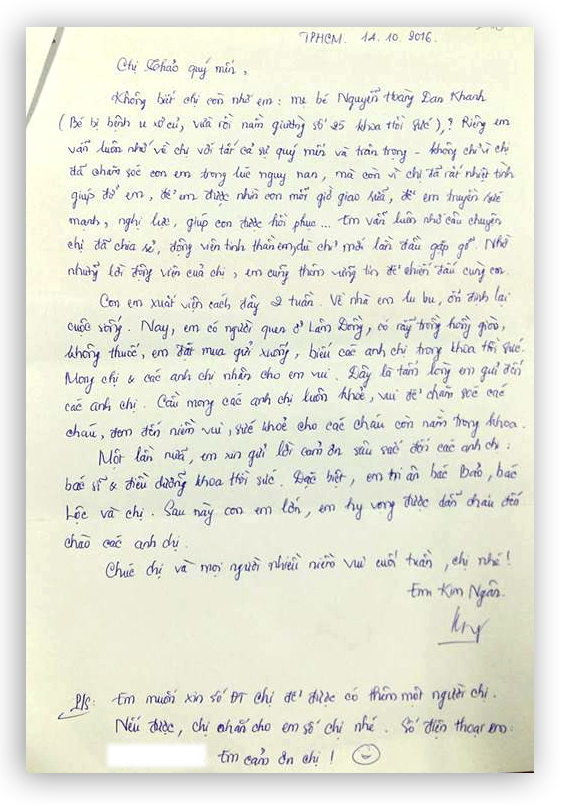 TPHCM. 14. 10. 2016.
Chị Thảo quý mến,
Không biết chị còn nhớ em: mẹ bé Nguyễn Hoàng Đan Khanh
(Bé bị bệnh u xơ cứ, vừa rồi nằm giường số 25 khoa Hồi sức),? Riêng em
vẫn luôn nhớ về chị với tất cả sự quý mến và trân trọng - không chỉ vì chị
đã chăm sóc con em trong lúc nguy nan, mà còn vì chị đã rất nhiệt tình
giúp đỡ em, để em được nhìn con mỗi giờ giao sữa, để em truyền sức
mạnh, nghị lực, giúp con được hồi phục... Em vẫn luôn nhớ câu chuyện
chị đã chia sẻ, động viên tinh thần em, dù chỉ mới lần đầu gặp gỡ. Nhờ
những lời động viên của chị, em cũng thêm vững tin để chiến đấu cùng con.
Con em xuất viện cách đây 2 tuần. Về nhà em lu bu, ổn định lại
cuộc sống. Nay, em có người quen ở Lâm Đồng, có rẫy trồng hồng giòn,
không thuốc, em đặt mua gửi xuống, biếu các anh chị trong khoa Hồi sức.
Mong chị & các anh chị nhận cho em vui. Đây là tấm lòng em gửi đến
các anh chị. Cầu mong các anh chị luôn khoẻ, vui để chăm sóc các
cháu, đem đến niềm vui, sức khoẻ cho các cháu còn nằm trong khoa.
Một lần nữa, em xin gửi lời cảm ơn sâu sắc đến các anh chị:
bác sĩ & điều dưỡng khoa Hồi sức. Đặc biệt, em tri ân bác Bảo, bác
Lộc và chị. Sau này con em lớn, em hy vọng được dẫn cháu đến
chào các anh chị.
Chúc chị và mọi người nhiều niềm vui cuối tuần, chị nhé!
Em Kim Ngân.
P/S: Em muốn xin số ĐT chị để được có thêm một người chị.
Nếu được, chị nhắn cho em số chị nhé. Số điện thoại em:
Em cảm ơn chị!